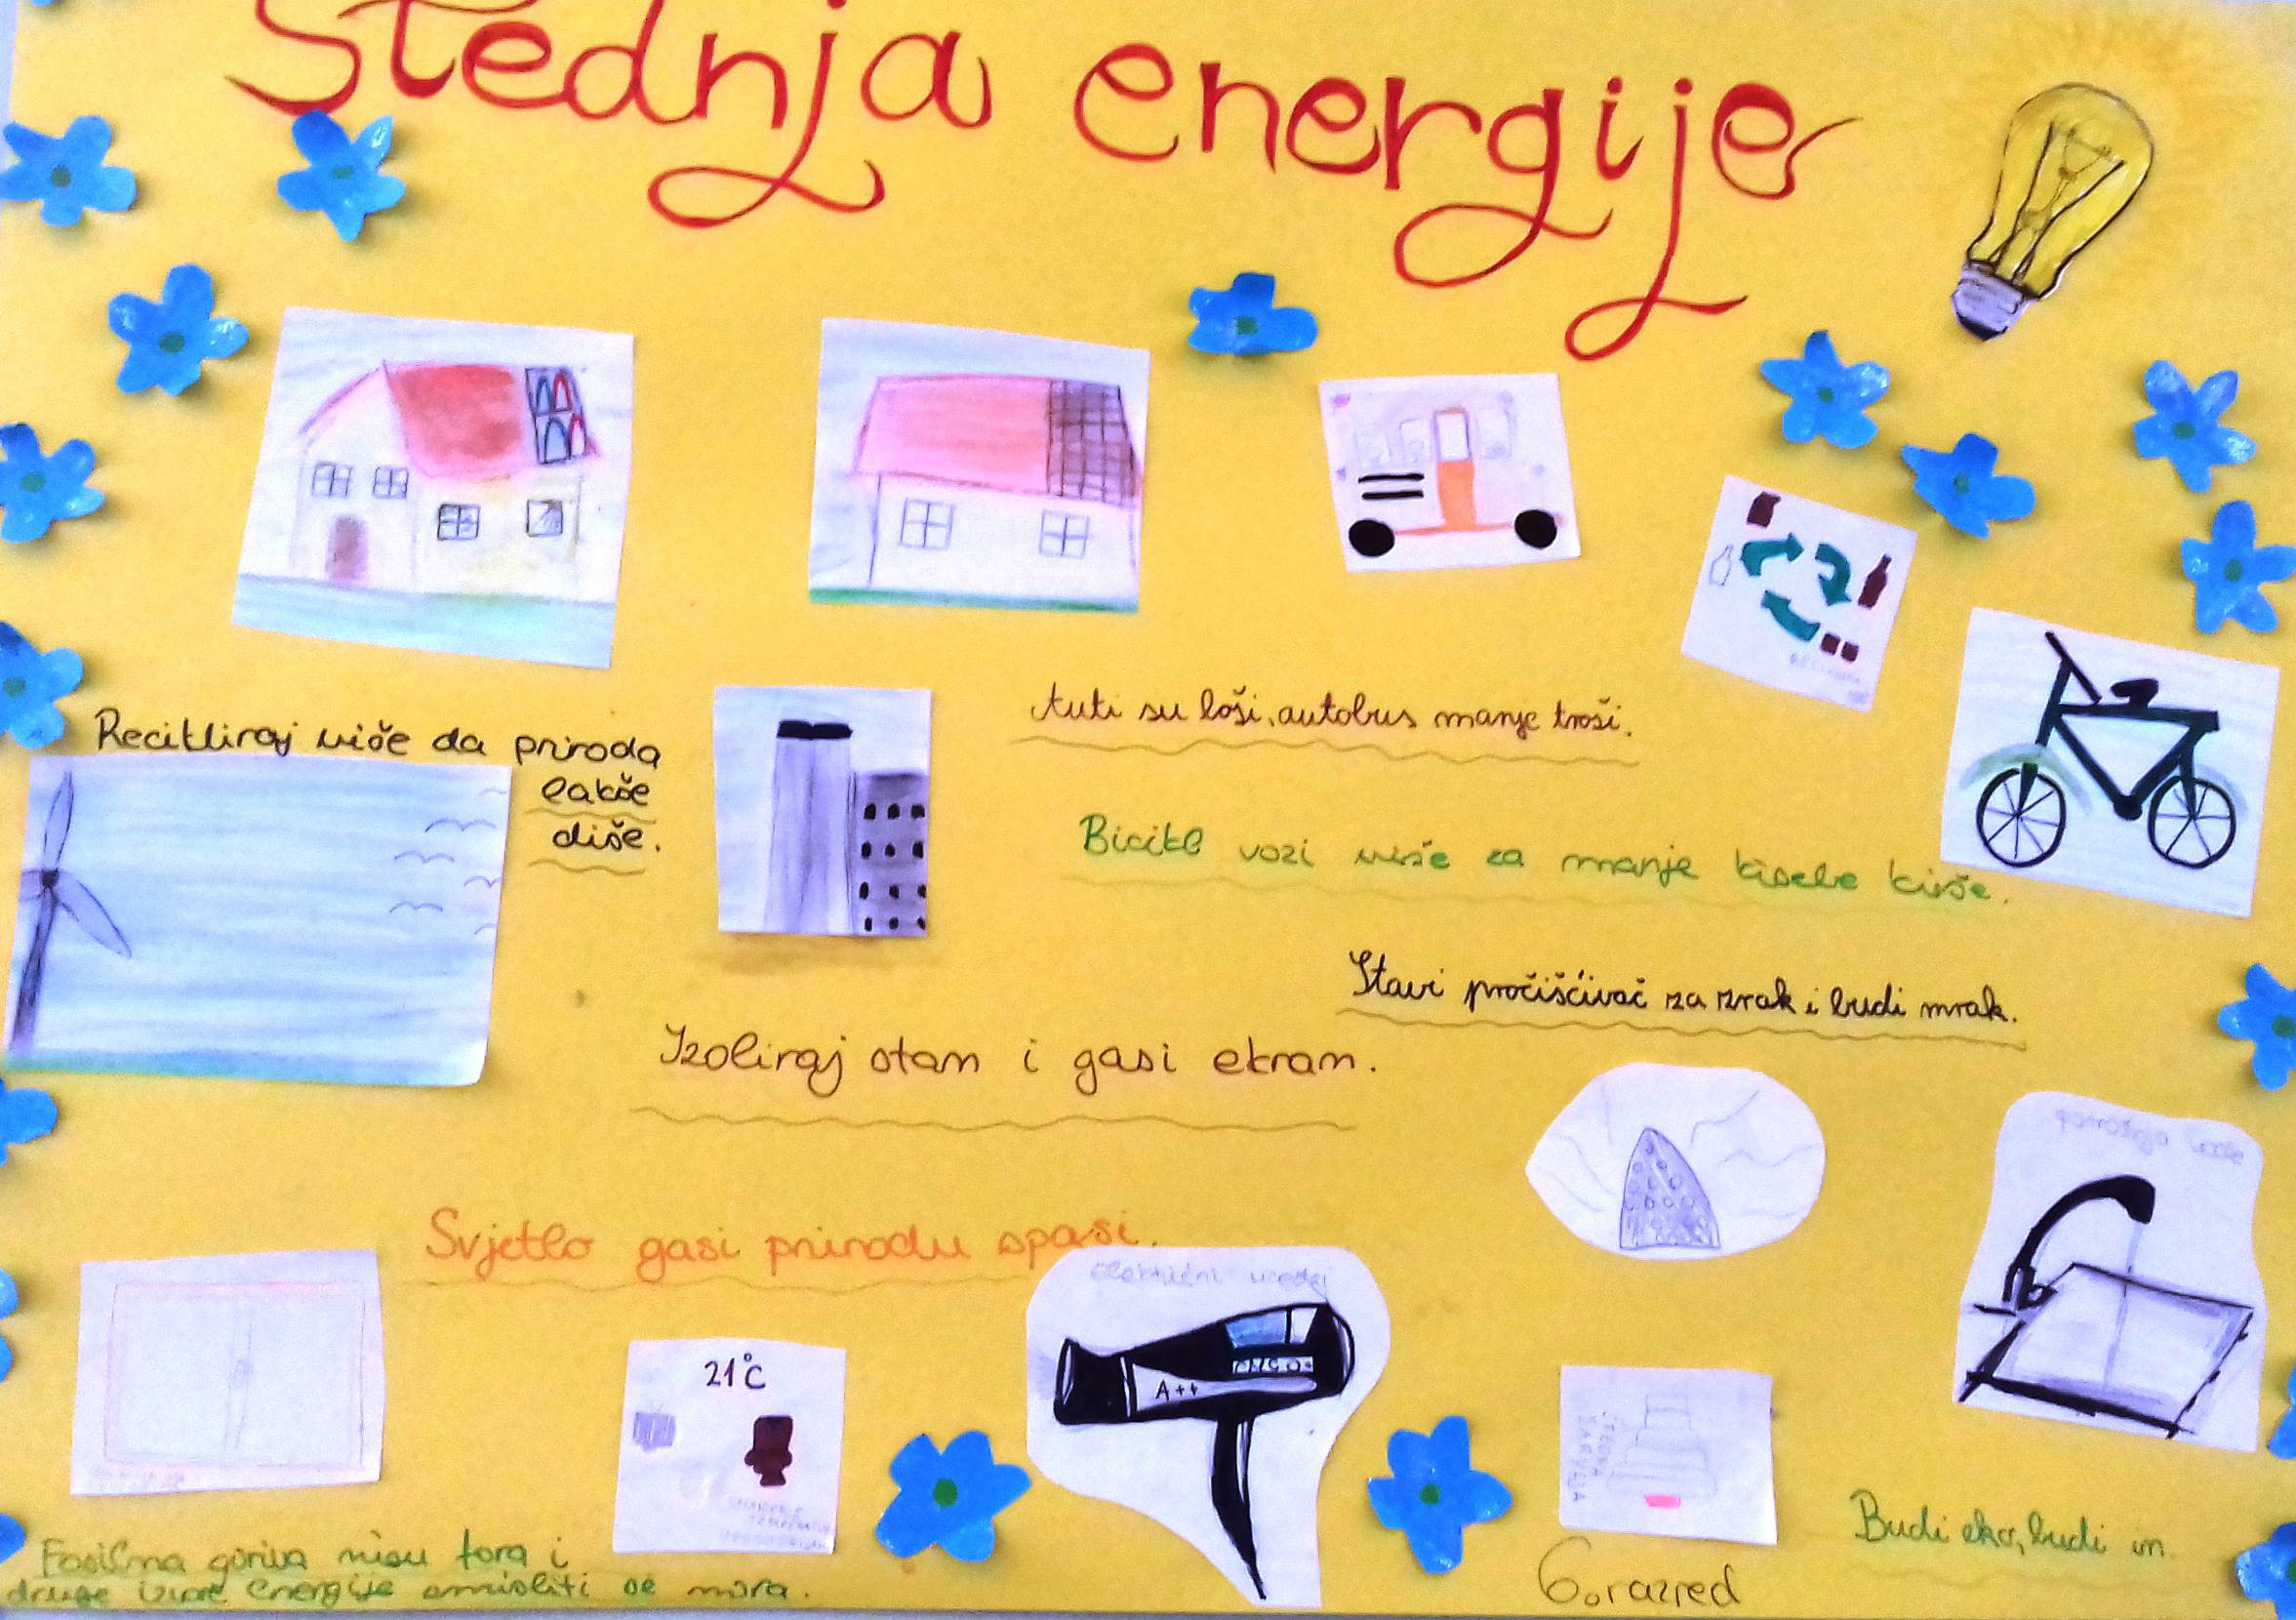 Štednja energije
Recikliraj više da priroda
lakše
diše.
Auti su loši, autobus manje troši.
Bicikl vozi više za manje kisele kiše.
Stavi pročišćivač za zrak i budi mrak.
Izoliraj stan i gasi ekran.
Svjetlo gasi prirodu spasi.
električni uređaj
A++
21°C
ŠTEDNA
ŽARULJA
Fosilna goriva nisu fora i
druge izvore energije smisliti se mora.
6. razred
Budi eko, budi in